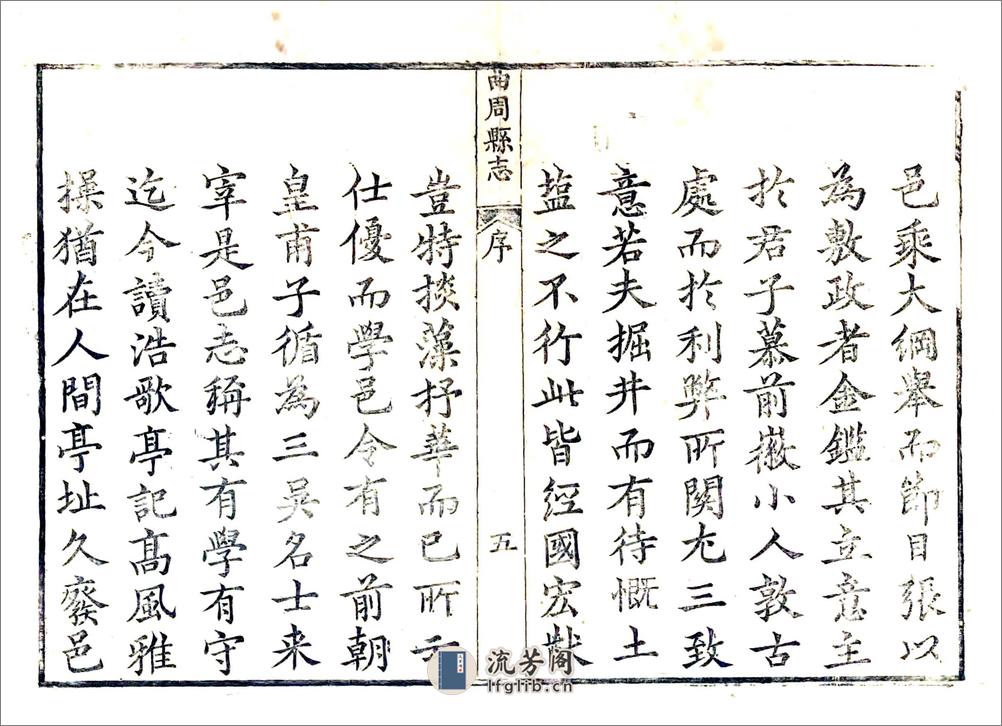 邑乘大綱舉而節目張以
為敷政者金鑑其立意主
於君子慕前徽小人敦古
處而於利弊所關尤三致
意若夫掘井而有待慨土
盐之不行此皆經國宏猷
曲周縣志
序
五
豈特掞藻抒華而已所云
仕優而學邑令有之前朝
皇甫子循為三吳名士来
宰是邑志稱其有學有守
迄今讀浩歌亭記髙風雅
操猶在人間亭址久廢邑
流芳阁
lfglib.cn